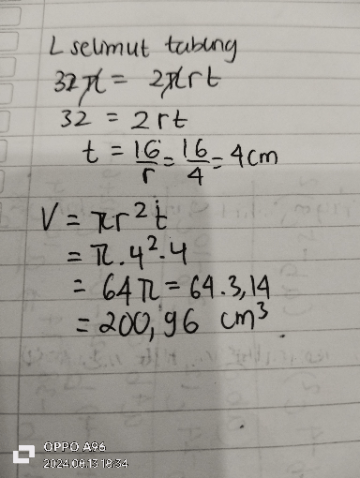 L selimut tabung
32π = 2πrt
32 = 2rt
t = 16/r = 16/4 = 4cm
V = πr²t
= π.4².4
= 64π = 64.3,14
= 200,96 cm³
OPPO A96
2024.08.13 18:34